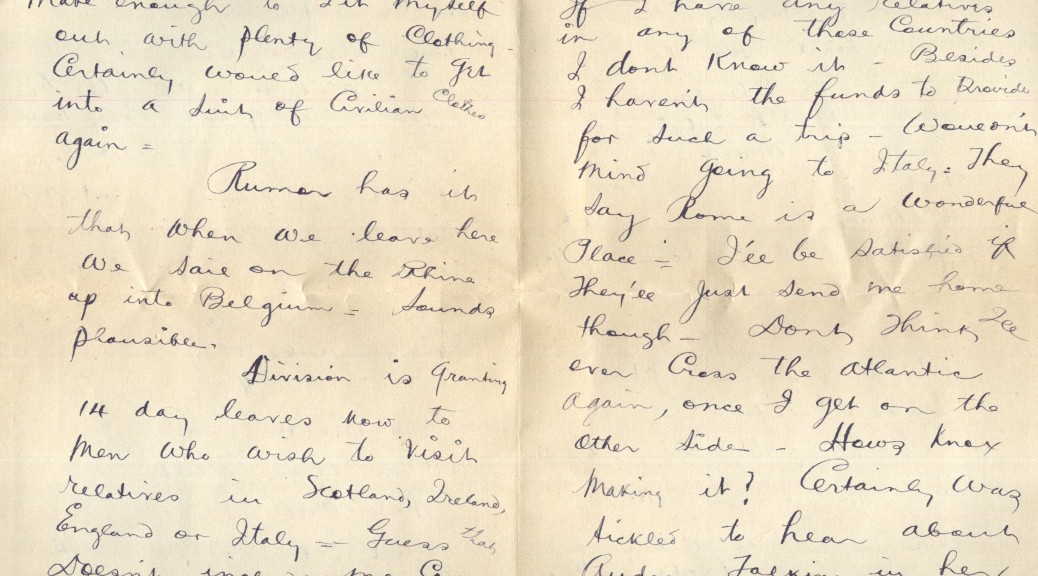 make enough to fit myself
out with plenty of Clothing -
Certainly would like to get
into a suit of Civilian Clothes
again =
Rumor has it
that when we leave here
we sail on the Rhine
up into Belgium = Sounds
plausible.
Division is granting
14 day leaves now to
men who wish to visit
relatives in Scotland, Ireland,
England or Italy = Guess that
Doesn't me
If I have any relatives
in any of those Countries
I dont Know it - Besides
I haven't the funds to Provide
for such a trip - Wouldn't
mind going to Italy = They
say Rome is a wonderful
Place = I'll be satisfied if
They'll just send me home
though - Dont Think I'll
ever Cross the atlantic
again, once I get on the
other side - Hows Knox
making it? Certainly was
tickled to hear about
in her